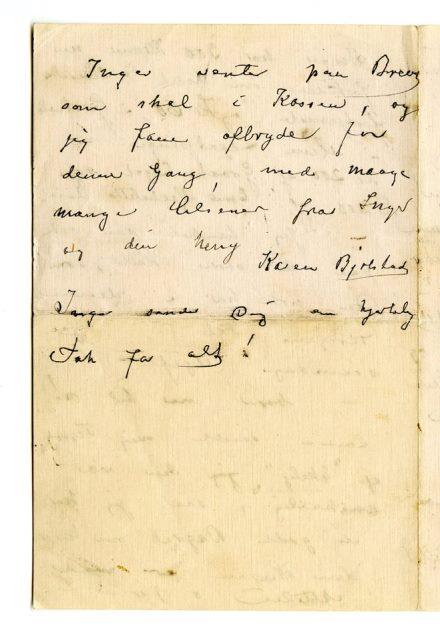 Inger venter paa Brevet
som skal i Kassen, og
jeg faar afbryde for
denne Gang, med mange
mange Hilsener fra Inger
og din heng
Karen Bjölstad
Inger sender Dig en hjertelig
Tak for alt!